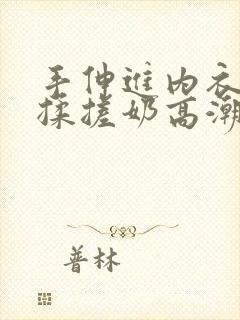 手伸进内衣
揉搓奶高潮
普林